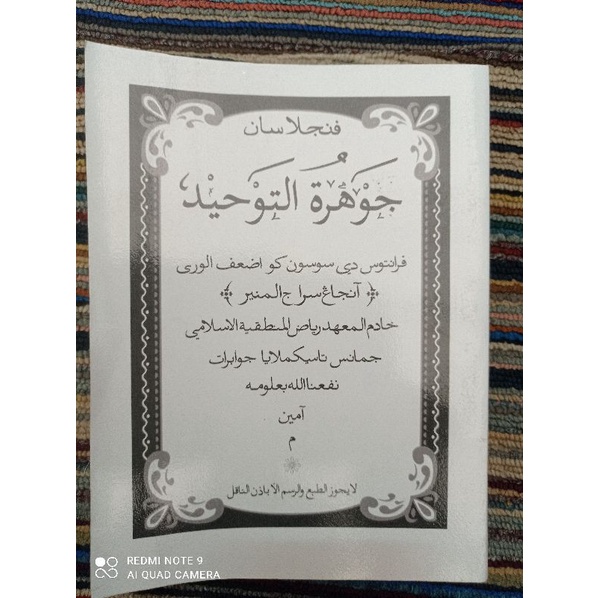 فنجلاسان
جَوْهَرَةُ التَّوْحِيْدِ
فرانتوس دي سوسون كو اضعف الورى
﴿ آنجاڠ سراج المنير ﴾
خادم المعهد رياض المنطقية الاسلامي
جمانس تاسيكملايا جوابرات
نفعنا الله بعلومه
آمين
م
لا يجوز الطبع والرسم الا باذن الناقل
REDMI NOTE 9
AI QUAD CAMERA